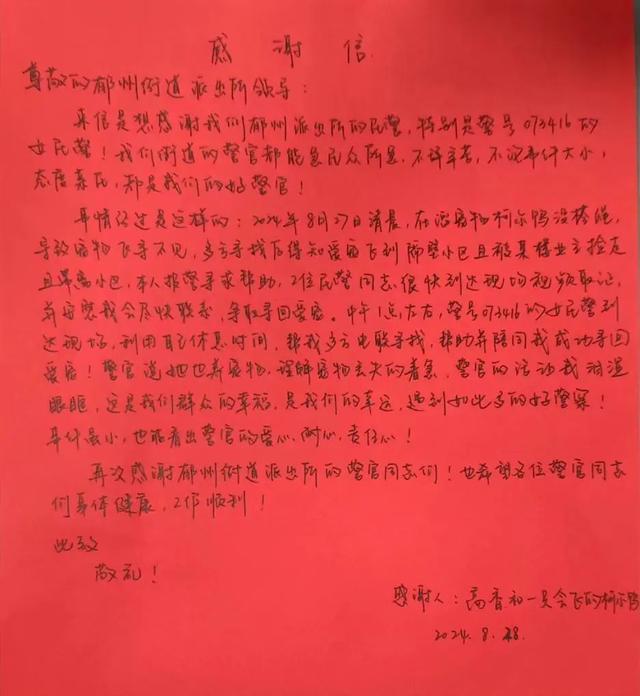 感谢信
尊敬的郁州街道派出所领导：
来信是想感谢我们郁州派出所的民警，特别是警号073416的
女民警！我们街道的警官都能急民众所急，不辞辛苦，不论事件大小，
态度亲民，都是我们的好警官！
事情经过是这样的：2024年8月27日清晨，在遛宠物柯尔鸭没栓绳，
导致宠物飞寻不见，多方寻找后得知爱宠飞到隔壁小区且被某楼业主捡走
且带离小区，本人报警寻求帮助，2位民警同志很快到达现场视频取证，
并安慰我会尽快联系，争取寻回爱宠。中午1点左右，警号073416的女民警到
达现场，利用自己休息时间，帮我多方电联寻找，帮助并陪同我成功寻回
爱宠！警官说她也养宠物，理解宠物丢失的着急，警官的话让我泪湿
眼眶，这是我们群众的幸福，是我们的幸运，遇到如此多的好警察！
事件虽小，也能看出警官的爱心、耐心、责任心！
再次感谢郁州街道派出所的警官同志们！也希望各位警官同志
们身体健康，工作顺利！
此致
敬礼！
感谢人：高香初一只会飞的柯尔鸭
2024.8.28